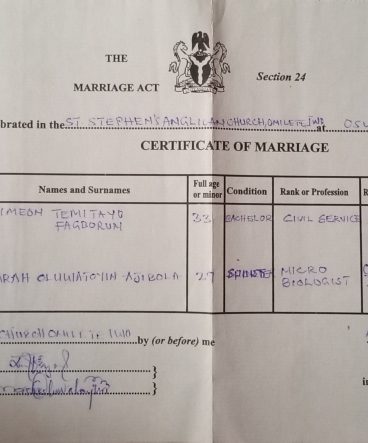 THE
MARRIAGE ACT
Section 24
brated in the ST STEPHEN'S ANGLICAN CHURCH, at
CERTIFICATE OF MARRIAGE
Names and Surnames Full age or minor Condition Rank or Profession R
IMEON TEMITAYO FAGBORUN 33 BACHELOR CIVIL SERVICE
ARAH OLUWATOYIN AJIBOLA 27 SPINSTER MICRO BIOLOGIST
CHURCH by (or before) me
}
}